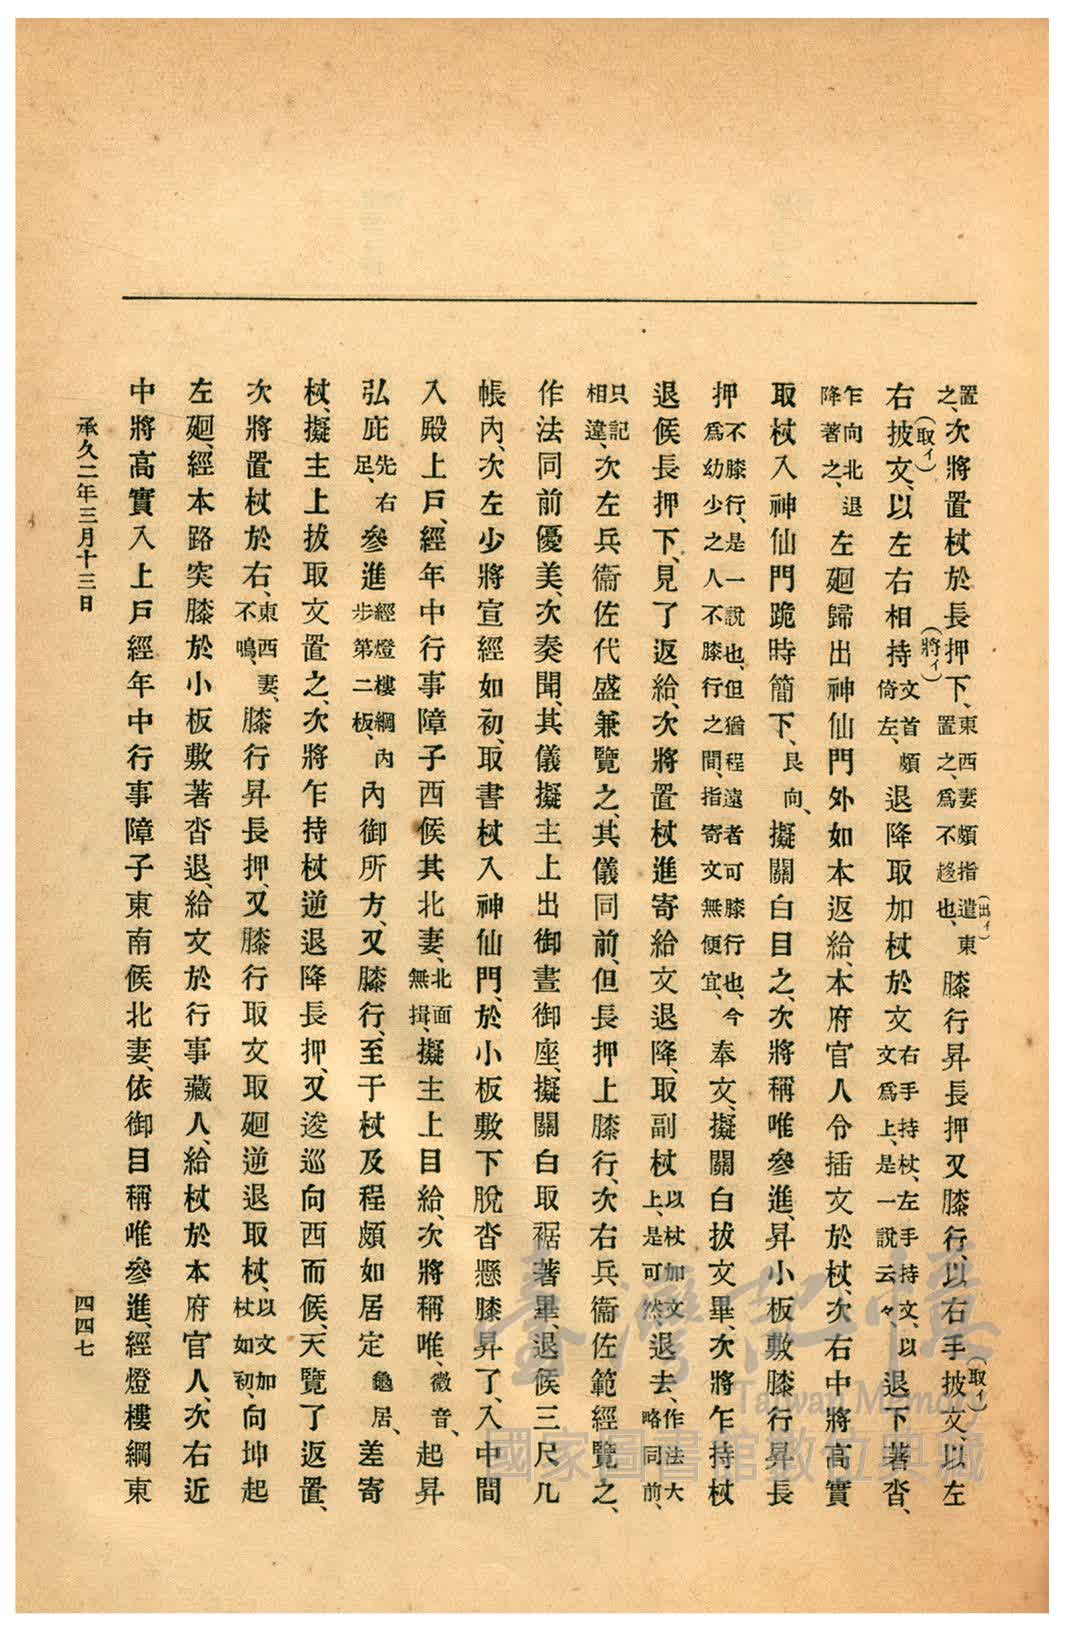 置之、次將置杖於長押下、東西妻頗指遣東置之、爲不趍也、膝行昇長押又膝行、以右手披文、以左
(將イ)
(出イ)
(取イ)
右披文、以左右相持文首頗倚左、退降取加杖於文右手持杖、左手持文、以文爲上、是一說云々、退下著沓、
(取イ)
乍向北退降著之、左廻歸出神仙門外如本返給、本府官人令插文於杖、次右中將高實
取杖入神仙門跪時簡下、艮向、擬關白目之、次將稱唯參進、昇小板敷膝行昇長
押不膝行、是一說也、但猶程遠者可膝行也、今爲幼少之人不膝行之間、指寄文無便宜、奉文、擬關白拔文畢、次將乍持杖
退候長押下、見了返給、次將置杖進寄給文退降、取副杖以杖加文上、是可然、退去、作法大略同前、
只記相違、次左兵衞佐代盛兼覽之、其儀同前、但長押上膝行、次右兵衞佐範經覽之、
作法同前優美、次奏聞、其儀擬主上出御晝御座、擬關白取裾著畢、退候三尺几
帳內、次左少將宣經如初、取書杖入神仙門、於小板敷下脫沓懸膝昇了、入中間
入殿上戶、經年中行事障子西候其北妻、北面無揖、擬主上目給、次將稱唯、微音、起昇
弘庇先右足、參進經燈樓綱內步第二板、內御所方、又膝行、至于杖及程頗如居定龜居、差寄
杖、擬主上拔取文置之、次將乍持杖逆退降長押、又逡巡向西而候、天覽了返置、
次將置杖於右、東西妻、不鳴、膝行昇長押、又膝行取文取廻逆退取杖、以文加杖如初、向坤起
左廻、經本路突膝於小板敷著沓退、給文於行事藏人、給杖於本府官人、次右近
中將高實入上戶經年中行事障子東南候北妻、依御目稱唯參進、經燈樓綱東
承久二年三月十三日
四四七
臺灣記憶
Taiwan Memory
國家圖書館數位典藏